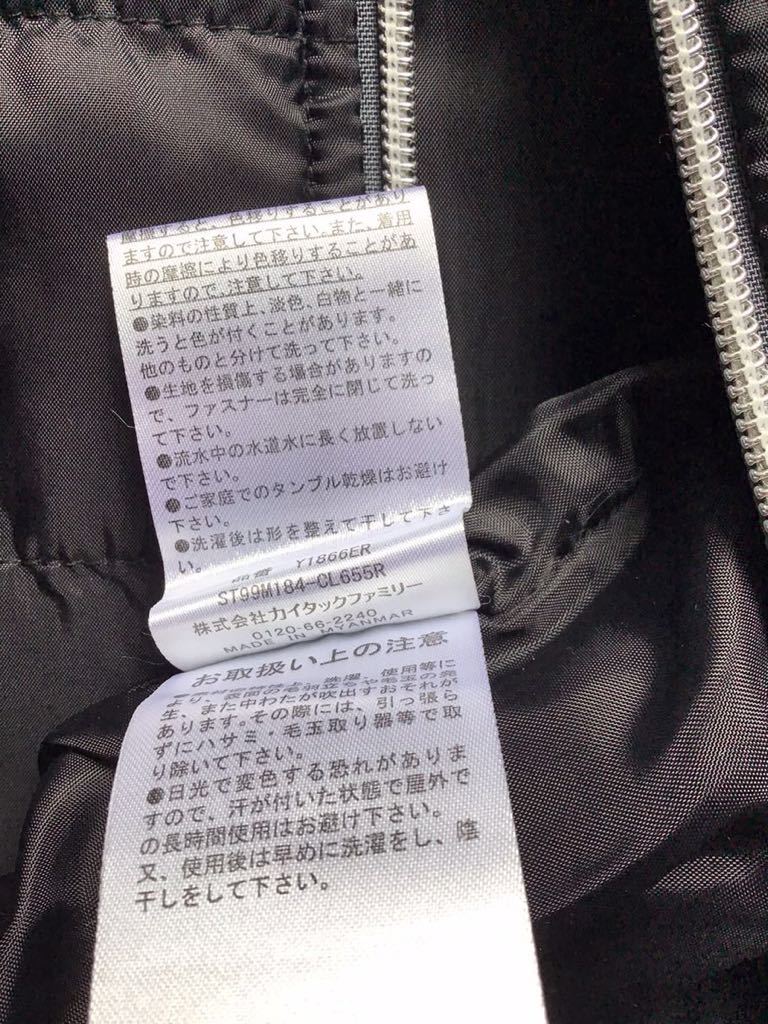 摩擦すると、色移りすることがあり
ますので注意して下さい。また、着用
時の摩擦により色移りすることがあ
りますので、注意して下さい。
●染料の性質上、淡色、白物と一緒に
洗うと色が付くことがあります。
他のものと分けて洗って下さい。
●生地を損傷する場合がありますの
で、ファスナーは完全に閉じて洗っ
て下さい。
●流水中の水道水に長く放置しない
で下さい。
●ご家庭でのタンブル乾燥はお避け
下さい。
●洗濯後は形を整えて干して下さ
い。
品番 Y1866ER
ST99M184-CL655R
株式会社カイタックファミリー
0120-66-2240
MADE IN MYANMAR
お取扱い上の注意
洗濯、使用等に
より、表面の毛羽立ちや毛玉の発
生、また中わたが吹出すおそれが
あります。その際には、引っ張ら
ずにハサミ・毛玉取り器等で取
り除いて下さい。
●日光で変色する恐れがありま
すので、汗が付いた状態で屋外で
の長時間使用はお避け下さい。
又、使用後は早めに洗濯をし、陰
干しをして下さい。